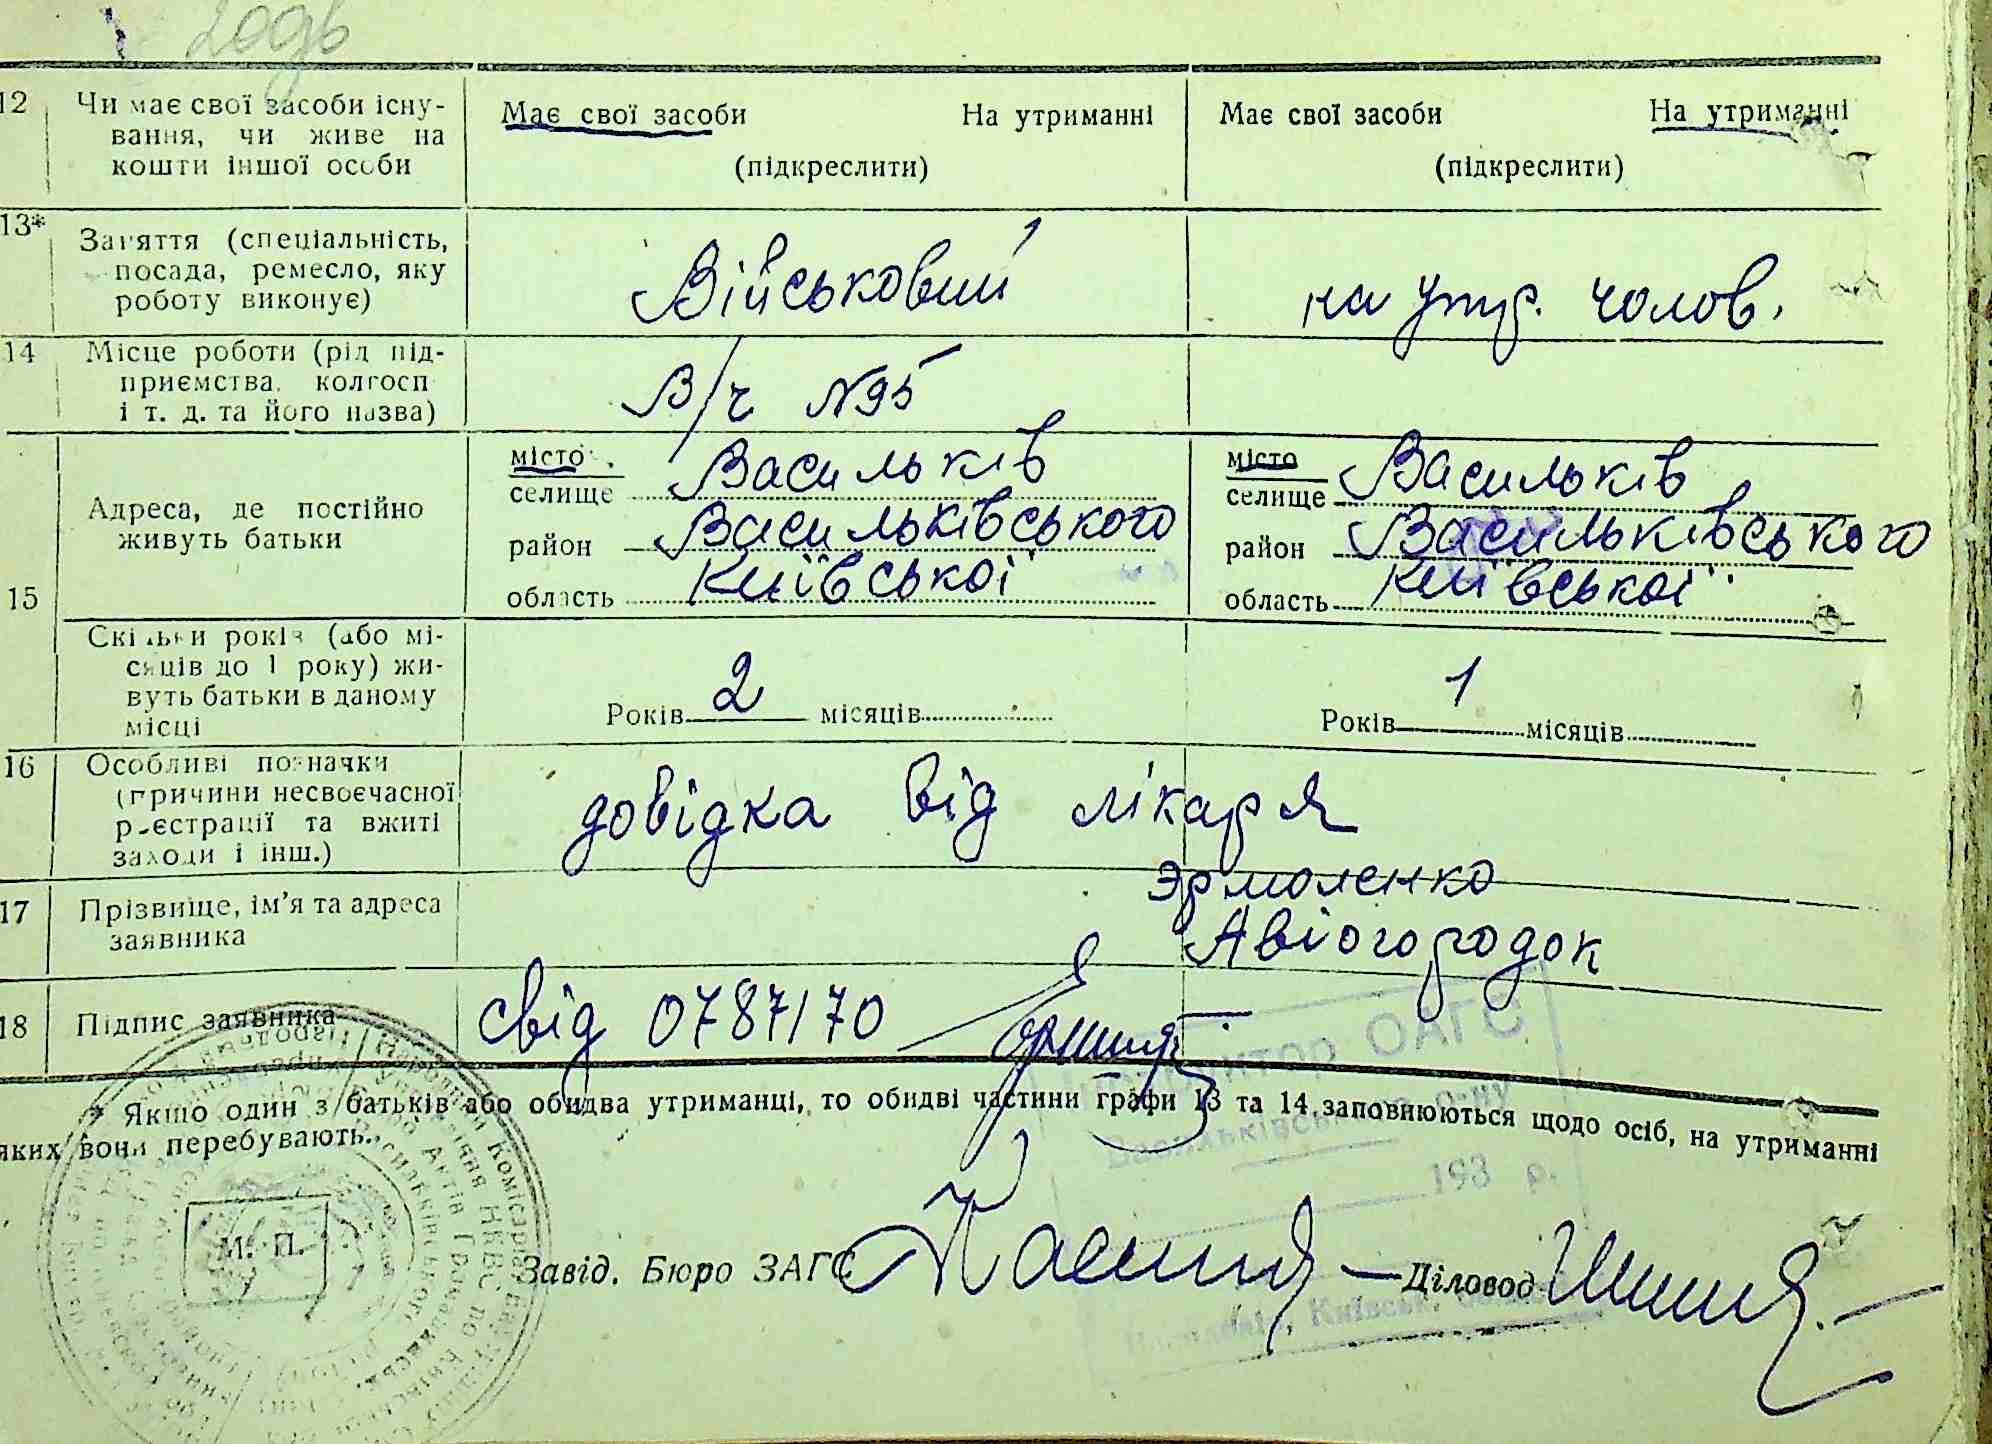 12 Чи має свої засоби існу- Має свої засоби На утриманні Має свої засоби На утриманні
вання, чи живе на
кошти іншої особи (підкреслити) (підкреслити)
13* Заняття (спеціальність,
посада, ремесло, яку Військовий на утр. чолов.
роботу виконує)
14 Місце роботи (рід під-
приємства, колгосп В/ч №95
і т. д. та його назва)
місто Васильків місто Васильків
селище селище
Адреса, де постійно
живуть батьки район Васильківського район Васильківського
15 область Київської область Київської
Скільки років (або мі-
сяців до 1 року) жи-
вуть батьки в даному Років 2 місяців Років 1 місяців
місці
16 Особливі позначки
(причини несвоєчасної довідка від лікаря
реєстрації та вжиті
заходи і інш.)
Эрмоленко
17 Прізвище, ім'я та адреса
заявника Авіогородок
18 Підпис заявника свід 0787170
* Якщо один з батьків або обидва утриманці, то обидві частини графи 13 та 14 заповнюються щодо осіб, на утриманні
яких вони перебувають.
ОАГС
193 р.
М. П.
Завід. Бюро ЗАГС Діловод